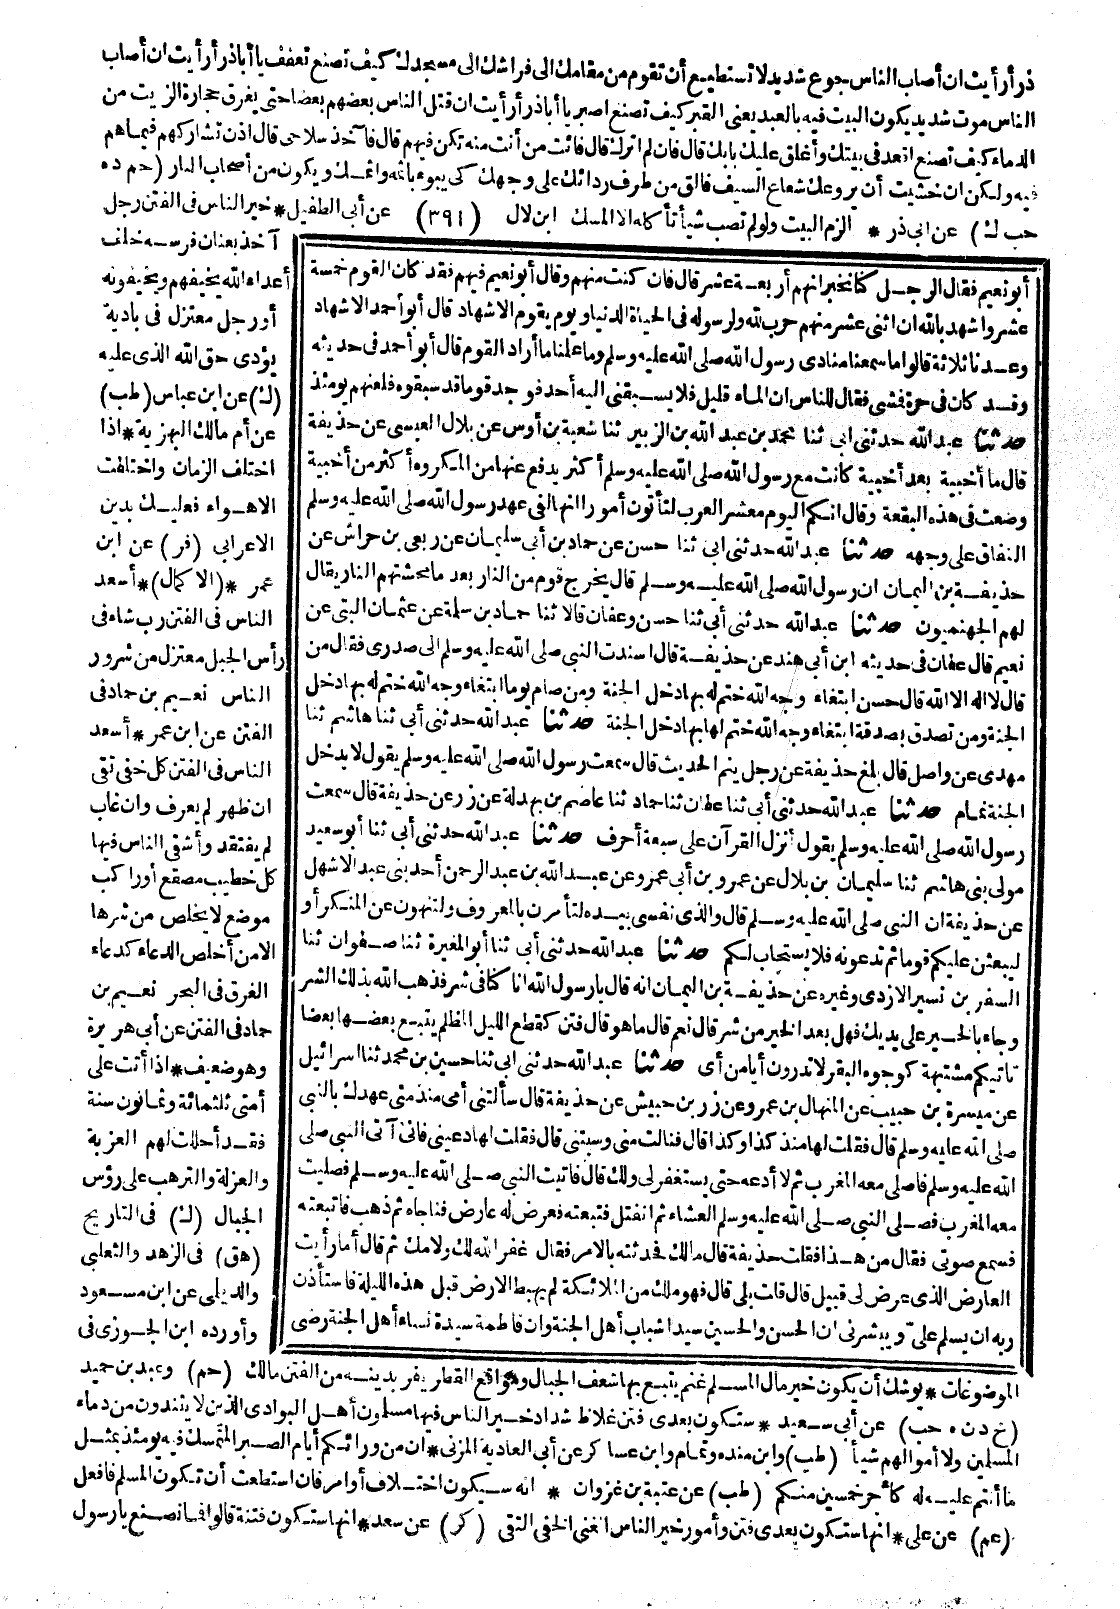 ذر أرأيت ان أصاب الناس جوع شديد لا تستطيع أن تقوم من مقامك الى فراشك الى مسجدك كيف تصنع تعفف يا أباذر أرأيت ان أصاب
الناس موت شديد يكون البيت فيه بالعبد يعنى القبر كيف تصنع اصبر يا أباذر أرأيت ان قتل الناس بعضهم بعضا حتى يغرق حجارة الزيت من
الدماء كيف تصنع اقعد فى بيتك وأغلق عليك بابك قال فان لم اترك قال فائت من أنت منه تكن فيهم قال فآخذ سلاحى قال اذن تشاركهم فيما هم
فيه ولكن ان خشيت أن يروعك شعاع السيف فالق من طرف ردائك على وجهك كى يبوء باثمه واثمك ويكون من أصحاب النار (حم د ه
حب ك) عن ابى ذر * الزم البيت ولو لم تصب شيأ تأكله الا المسك ابن لال (٣٩١) عن أبى الطفيل * خير الناس فى الفتن رجل
آخذ بعنان فرسه خلف
أعداء الله يخيفهم ويخيفونه
أو رجل معتزل فى بادية
يؤدى حق الله الذى عليه
(ك) عن ابن عباس (طب)
عن أم مالك البهزية * اذا
اختلف الزمان واختلفت
الاهواء فعليك بدين
الاعرابى (فر) عن ابن
عمر * (الاكمال) * أسعد
الناس فى الفتن رب شاء فى
رأس الجبل معتزل من شرور
الناس نعيم بن حماد فى
الفتن عن ابن عمر * أسعد
الناس فى الفتن كل خفى تقى
ان ظهر لم يعرف وان غاب
لم يفتقد وأشقى الناس فيها
كل خطيب مصقع أو راكب
موضع لا يخلص من شرها
الا من أخلص الدعاء كدعاء
الغرق فى البحر نعيم بن
حماد فى الفتن عن أبى هريرة
وهو ضعيف * اذا أتت على
أمتى ثلثمائة وثمانون سنة
فقد أحللت لهم العزبة
والعزلة والترهب على رؤس
الجبال (ك) فى التاريخ
(هق) فى الزهد والثعلبى
والديلمى عن ابن مسعود
وأورده ابن الجوزى فى
أبو نعيم فقال الرجل كنا نخبر انهم أربعة عشر قال فان كنت منهم وقال أبو نعيم فيهم فقد كان القوم خمسة
عشر وأشهد بالله ان اثنى عشر منهم حرب لله ولرسوله فى الحياة الدنيا ويوم يقوم الاشهاد قال أبو أحمد الاشهاد
وعدنا ثلاثة قالوا ما سمعنا منادى رسول الله صلى الله عليه وسلم وما علمنا ما أراد القوم قال أبو أحمد فى حديثه
وقد كان فى حرة فمشى فقال للناس ان الماء قليل فلا يسبقنى اليه أحد فوجد قوما قد سبقوه فلعنهم يومئذ
حدثنا عبد الله حدثنى أبى ثنا محمد بن عبد الله بن الزبير ثنا شعبة بن أوس عن بلال العبسى عن حذيفة
قال ما أخبية بعد أخبية كانت مع رسول الله صلى الله عليه وسلم أكثر يدفع عنها من المكروه أكثر من أخبية
وضعت فى هذه البقعة وقال انكم اليوم معشر العرب لتأتون أمورا انها لفى عهد رسول الله صلى الله عليه وسلم
النفاق على وجهه حدثنا عبد الله حدثنى ابى ثنا حسن عن حماد بن أبى سليمان عن ربعى بن حراش عن
حذيفة بن اليمان ان رسول الله صلى الله عليه وسلم قال يخرج قوم من النار بعد ما محشتهم النار يقال
لهم الجهنميون حدثنا عبد الله حدثنى أبى ثنا حسن وعفان قالا ثنا حماد بن سلمة عن عثمان البتى عن
نعيم قال عفان فى حديثه ابن أبى هند عن حذيفة قال اسندت النبى صلى الله عليه وسلم الى صدرى فقال من
قال لا اله الا الله قال حسن ابتغاء وجه الله ختم له بها دخل الجنة ومن صام يوما ابتغاء وجه الله ختم له بها دخل
الجنة ومن تصدق بصدقة ابتغاء وجه الله ختم لها بها دخل الجنة حدثنا عبد الله حدثنى أبى ثنا هاشم ثنا
مهدى عن واصل قال بلغ حذيفة عن رجل ينم الحديث قال سمعت رسول الله صلى الله عليه وسلم يقول لا يدخل
الجنة نمام حدثنا عبد الله حدثنى أبى ثنا عفان ثنا حماد ثنا عاصم بن بهدلة عن زر عن حذيفة قال سمعت
رسول الله صلى الله عليه وسلم يقول أنزل القرآن على سبعة أحرف حدثنا عبد الله حدثنى أبى ثنا أبو سعيد
مولى بنى هاشم ثنا سليمان بن بلال عن عمرو بن أبى عمرو عن عبد الله بن عبد الرحمن أحد بنى عبد الاشهل
عن حذيفة ان النبى صلى الله عليه وسلم قال والذى نفسى بيده لتأمرن بالمعروف ولتنهون عن المنكر أو
ليبعثن عليكم قوما ثم تدعونه فلا يستجاب لكم حدثنا عبد الله حدثنى أبى ثنا أبو المغيرة ثنا صفوان ثنا
السفر بن نسير الازدى وغيره عن حذيفة بن اليمان انه قال يا رسول الله انا كنا فى شر فذهب الله بذلك الشر
وجاء بالخير على يديك فهل بعد الخير من شر قال نعم قال ما هو قال فتن كقطع الليل المظلم يتبع بعضها بعضا
تاتيكم مشتبهة كوجوه البقر لا تدرون أيا من أى حدثنا عبد الله حدثنى ابى ثنا حسين بن محمد ثنا اسرائيل
عن ميسرة بن حبيب عن المنهال بن عمرو عن زر بن حبيش عن حذيفة قال سألتنى أمى منذ متى عهدك بالنبى
صلى الله عليه وسلم قال فقلت لها منذ كذا وكذا قال فنالت منى وسبتنى قال فقلت لها دعينى فانى آتى النبى صلى
الله عليه وسلم فاصلى معه المغرب ثم لا أدعه حتى يستغفر لى ولك قال فاتيت النبى صلى الله عليه وسلم فصليت
معه المغرب فصلى النبى صلى الله عليه وسلم العشاء ثم انفتل فتبعته فعرض له عارض فناجاه ثم ذهب فاتبعته
فسمع صوتى فقال من هذا فقلت حذيفة قال مالك فحدثته بالامر فقال غفر الله لك ولامك ثم قال أما رأيت
العارض الذى عرض لى قبيل قال قلت بلى قال فهو ملك من الملائكة لم يهبط الارض قبل هذه الليلة فاستأذن
ربه ان يسلم على ويبشرنى ان الحسن والحسين سيدا شباب أهل الجنة وان فاطمة سيدة نساء أهل الجنة رضى
الموضوعات * يوشك أن يكون خير مال المسلم غنم يتبع بها شعف الجبال ومواقع القطار يفر بدينه من الفتن مالك (حم) وعبد بن حميد
(خ د ن ه حب) عن أبى سعيد * ستكون بعدى فتن غلاظ شداد خير الناس فيها مسلمون أهل البوادى الذين لا يتندون من دماء
المسلمين ولا أموالهم شيأ (طب) وابن منده وتمام وابن عساكر عن أبى الغادية المزنى * ان من ورائكم أيام الصبر المتمسك فيه يومئذ بمثل
ما أنتم عليه له كأجر خمسين منكم (طب) عن عتبة بن غزوان * انه سيكون اختلاف أو امر فان استطعت أن تكون المسلم فافعل
(عم) عن على * انها ستكون بعدى فتن وأمور خير الناس الغنى الخفى التقى (كر) عن سعد * انها ستكون فتنة قالوا فما نصنع يا رسول